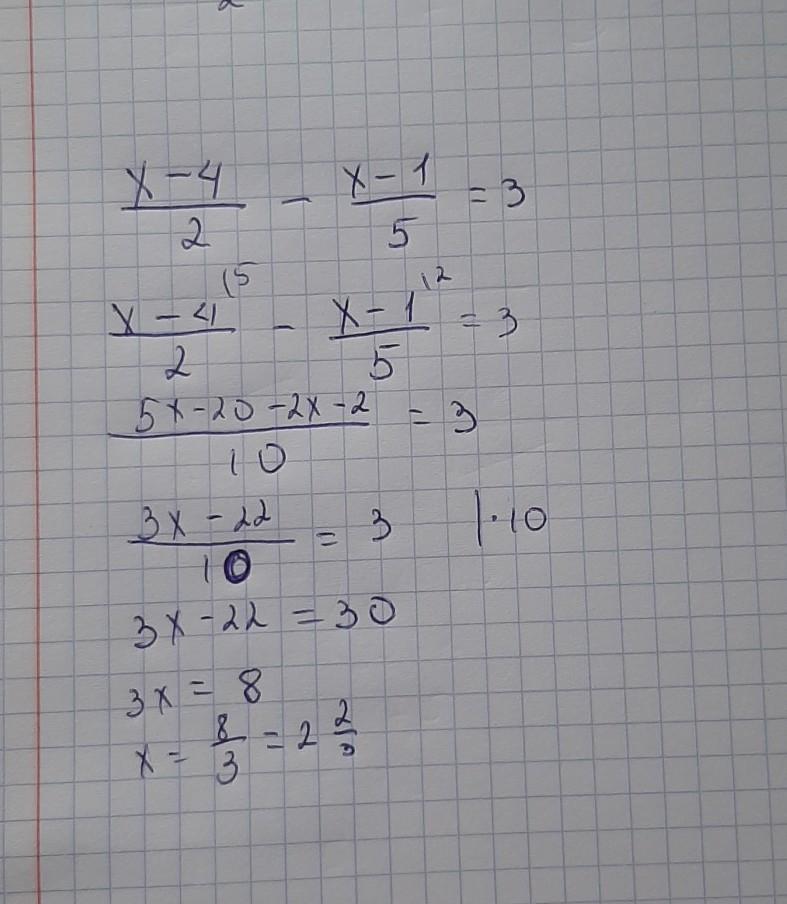 x-4/2 - x-1/5 = 3
x-4\5/2 - x-1\2/5 = 3
5x-20-2x-2/10 = 3
3x-22/10 = 3 |·10
3x-22 = 30
3x = 8
x = 8/3 = 2 2/3